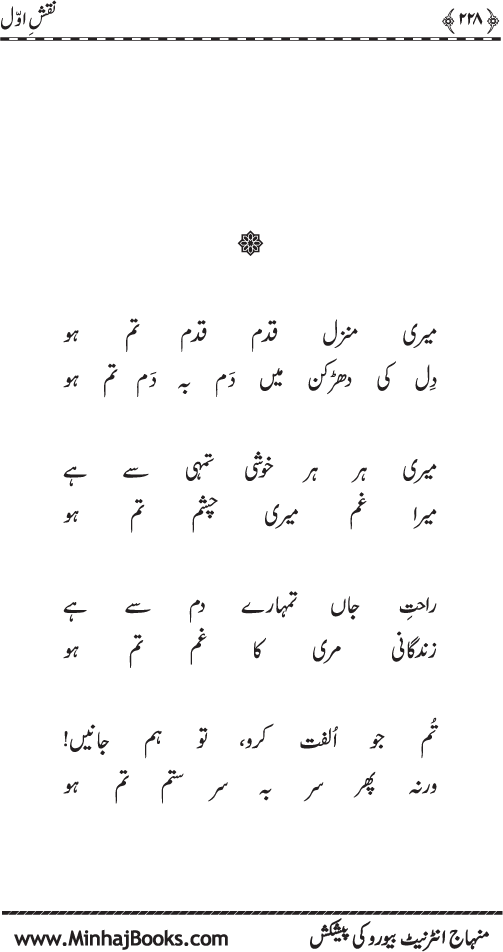 ﴿۲۲۸﴾ نقشِ اوّل
میری منزل قدم قدم تم ہو
دِل کی دھڑکن میں دَم بہ دَم تم ہو
میری ہر ہر خوشی تمہی سے ہے
میرا غم میری چشم تم ہو
راحتِ جاں تمہارے دم سے ہے
زندگانی مری کا غم تم ہو
تُم جو اُلفت کرو، تو ہم جانیں!
ورنہ پھر سر بہ سر ستم تم ہو
منہاج انٹرنیٹ بیورو کی پیشکش www.MinhajBooks.com